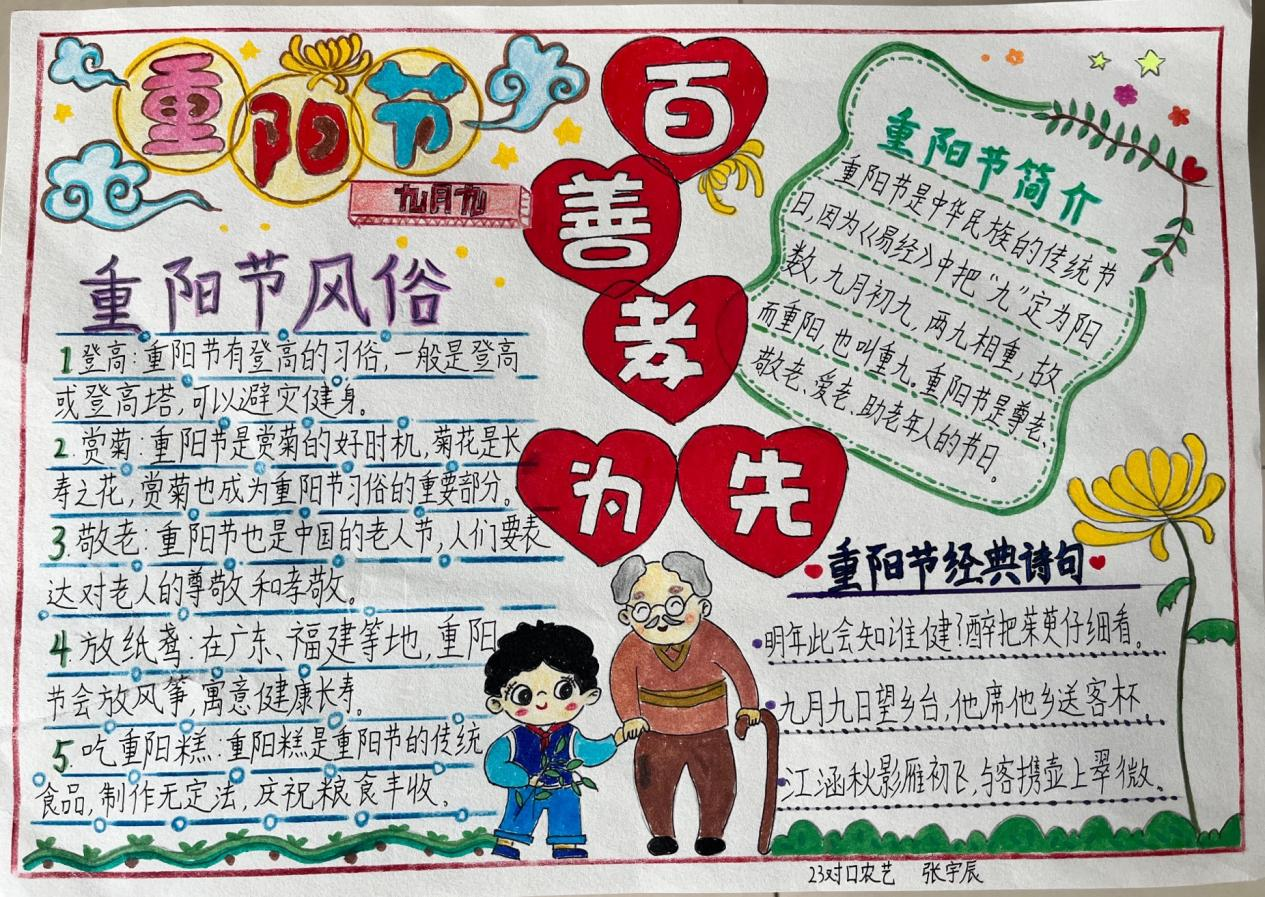 重阳节
九月九
百善孝为先
重阳节风俗
1登高:重阳节有登高的习俗,一般是登高
或登高塔,可以避灾健身。
2.赏菊:重阳节是赏菊的好时机,菊花是长
寿之花,赏菊也成为重阳节习俗的重要部分。
3.敬老:重阳节也是中国的老人节,人们要表
达对老人的尊敬和孝敬。
4.放纸鸢:在广东、福建等地,重阳
节会放风筝,寓意健康长寿。
5.吃重阳糕:重阳糕是重阳节的传统
食品,制作无定法,庆祝粮食丰收。
重阳节简介
重阳节是中华民族的传统节
日,因为《易经》中把“九”定为阳
数,九月初九,两九相重,故
而重阳,也叫重九。重阳节是尊老、
敬老、爱老、助老年人的节日。
重阳节经典诗句
明年此会知谁健?醉把茱萸仔细看。
九月九日望乡台,他席他乡送客杯,
江涵秋影雁初飞,与客携壶上翠微。
23对口农艺 张宇辰